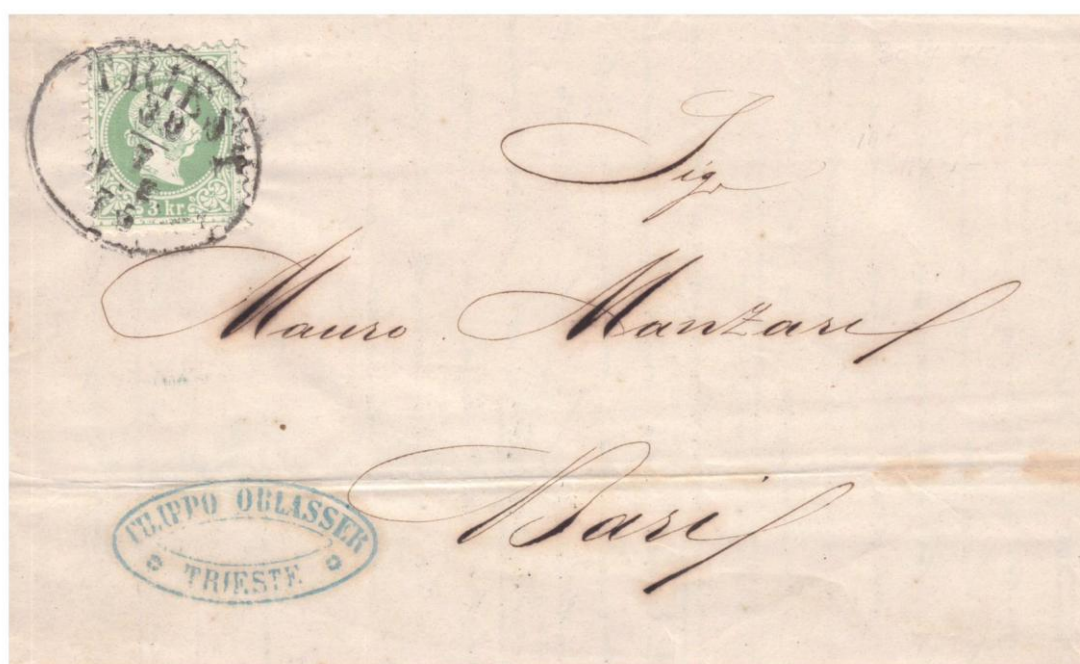 TRIEST
3 kr.
Sigr
Mauro Manzari
Bari
FILIPPO OBLASSER
TRIESTE